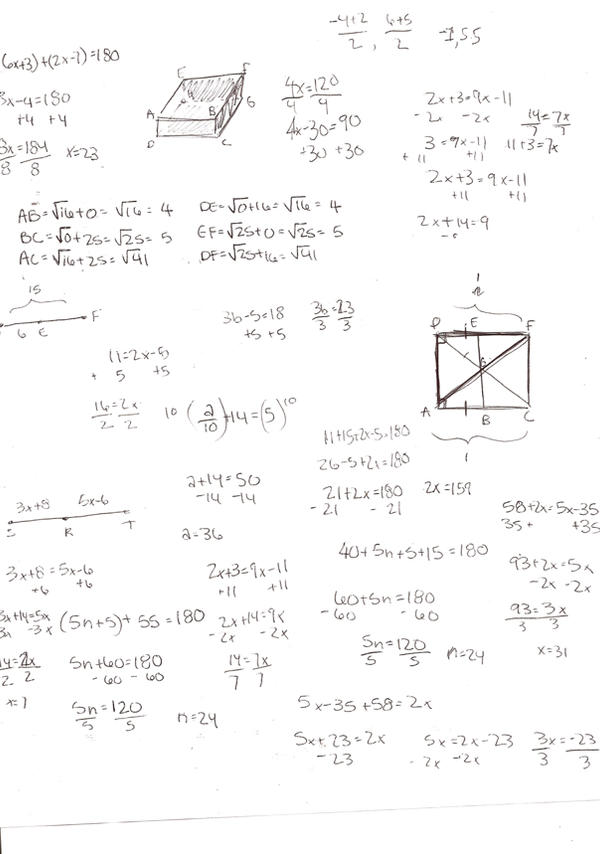 -4+2/2, 6+5/2 -1,5.5
(6x+3)+(2x-7)=180
8x-4=180
+4 +4
8x=184
8 8
x=23
E F
A B G
D C
4x=120
4 4
4x-30=90
+30 +30
2x+3=9x-11
-2x -2x
14=7x
7 7
3=7x-11
+11 +11
11+3=7x
2x+3=9x-11
+11 +11
2x+14=9
AB=√16+0=√16=4
BC=√0+25=√25=5
AC=√16+25=√41
DE=√0+16=√16=4
EF=√25+0=√25=5
DF=√25+16=√41
15
6 E F
11=2x-5
+5 +5
16=2x
2 2
3b-5=18
+5 +5
3b=23
3 3
10(a/10)+14=(5)10
a+14=50
-14 -14
a=36
D E F
G
A B C
11+15+2x-5=180
26-5+2x=180
21+2x=180
-21 -21
2x=159
3x+8 5x-6
S R T
3x+8=5x-6
+6 +6
3x+14=5x
-3x -3x
14=2x
2 2
x=7
(5n+5)+55=180
5n+60=180
-60 -60
5n=120
5 5
n=24
2x+3=9x-11
+11 +11
2x+14=9x
-2x -2x
14=7x
7 7
40+5n+5+15=180
60+5n=180
-60 -60
5n=120
5 5
n=24
58+2x=5x-35
35+ +35
93+2x=5x
-2x -2x
93=3x
3 3
x=31
5x-35+58=2x
5x+23=2x
-23
5x=2x-23
-2x -2x
3x=-23
3 3